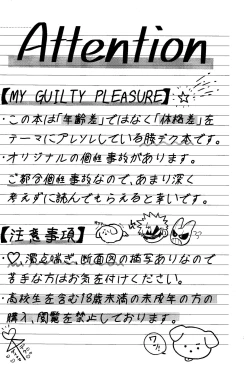 Attention
【MY GUILTY PLEASURE】
・この本は「年齢差」ではなく「体格差」を
テーマにアレンジしている勝デク本です。
・オリジナルの個性事故があります。
ご都合個性事故なので、あまり深く
考えずに読んでもらえると幸いです。
【注意事項】
・♡、濁点喘ぎ、断面図の描写ありなので
苦手な方はお気を付けください。
・高校生を含む18歳未満の未成年の方の
購入、閲覧を禁止しております。